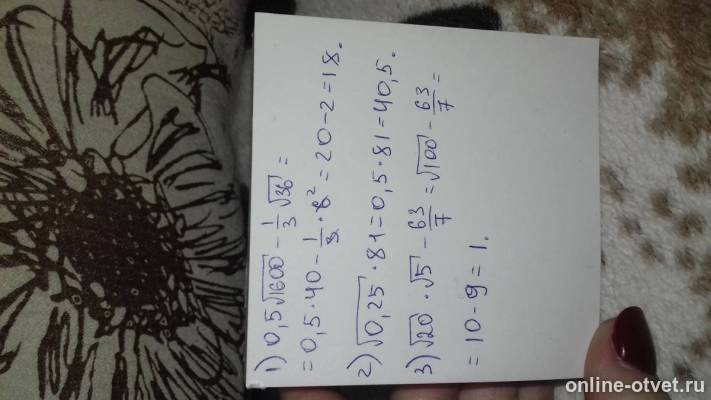 1) 0,5√1600 - 1/3 √36 =
= 0,5 · 40 - 1/3 · 6² = 20 - 2 = 18.
2) √0,25 · 81 = 0,5 · 81 = 40,5.
3) √20 · √5 - 63/7 = √100 - 63/7 =
= 10 - 9 = 1.
online-otvet.ru